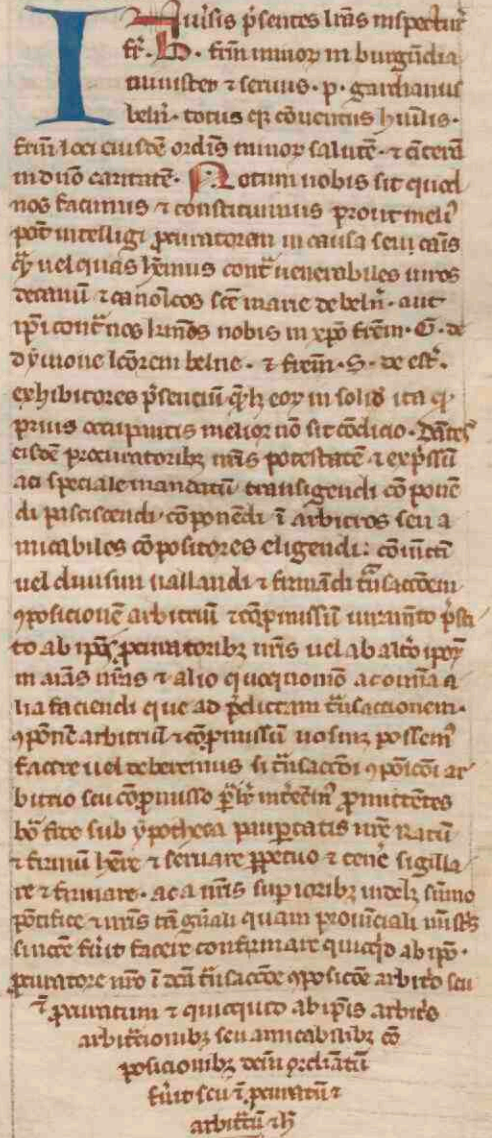 Iniuersis p̃sentes lr̃as inspectur̃
fr̃. H. fr̃m minoꝝ in burgũdia
minister ⁊ seruus. p. gardianus
beln̄. totus qꝫ cõuentus humil̃.
fr̃m loci eiusdẽ ordĩs minoꝝ salutẽ. ⁊ sincerã
in dn̄o caritatẽ. Notum uobis sit quod
nos facimus ⁊ constituimus prout meli᷒
pot̃ intelligi ꝓcuratorem in causa seu cãis
q̃ʒ uel quas hẽmus cont̃ uenerabiles uiros
decanũ ⁊ canoĩcos sc̃e marie de beln̄. aut
ip̃i cont̃ nos in nobis in xp̃o fr̃em. G. de
dyuione lc̃orem belne. ⁊ fr̃em. S. de
exhibitores p̃senciũ q̃mlʒ eoꝝ in solid̃ ita qꝫ
prius occupantis melior nõ sit cõdicio. Dãtes
eisdẽ procuratoribꝫ nr̃is potestatẽ ⁊ exp̃ssũ
ac speciale mandatũ transigendi cõponẽ
di pasciscendi. cõponẽdi ĩ arbitros seu a
micabiles cõpositores eligendi: cõiũctĩ
uel diuisim uallandi ⁊ firmãdi t̃nsacc̃oem
ꝯposicionẽ arbitriũ ⁊ cõꝓmissũ iuram̃to p̃sti
to ab ip̃is ꝓcuratoribꝫ nr̃is uel ab alt̃o ipoꝝ
in aĩas nr̃as ⁊ alio quoquomõ ac om̃ia a
lia faciendi que ad p̃dictam t̃nsactionem.
ꝯpõnẽ arbitriũ ⁊ cõꝓmissũ nosmꝫ possem᷒
facere uel deberemus si t̃nsacc̃oi ꝯpõic̃oi ar
bitrio seu cõꝓmisso ꝑs̃r int̃eẽm᷒ ꝓmittẽtes
bõ fide sub ypotheca paupertatis nr̃e ratũ
⁊ firmũ hẽre ⁊ seruare ꝑpetuo ⁊ tenẽ sigilla
re ⁊ firmare. ac a nr̃is superioribꝫ uidelꝫ sũmo
põtifice ⁊ nr̃is tã gñali quam prouĩciali mĩstĩs
sincere facere confirmare quicq̃d ab ip̃o.
ꝓcuratore nr̃o ĩ dc̃ã t̃nsacc̃oe ꝯposic̃oe arbitr̃o seu
ꝓcuratum ⁊ quicquid ab ip̃is arbitr̃s
arbitr̃cionibꝫ seu amicabilibꝫ cõ
posicionibꝫ
fũit seu ꝓcuratũ ⁊
arbitr̃tũ ⁊ h̃